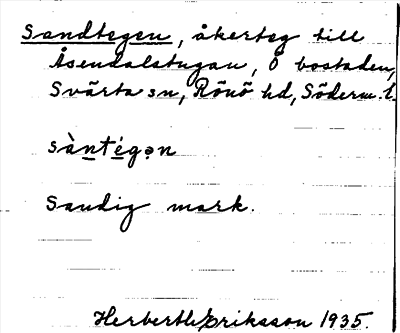 Sandtegen, åkerteg till
Åsendalstugan, Ö bostaden,
Svärta sn, Rönö hd, Söderm. l.
sàntégən
Sandig mark.
Herbert Eriksson 1935.